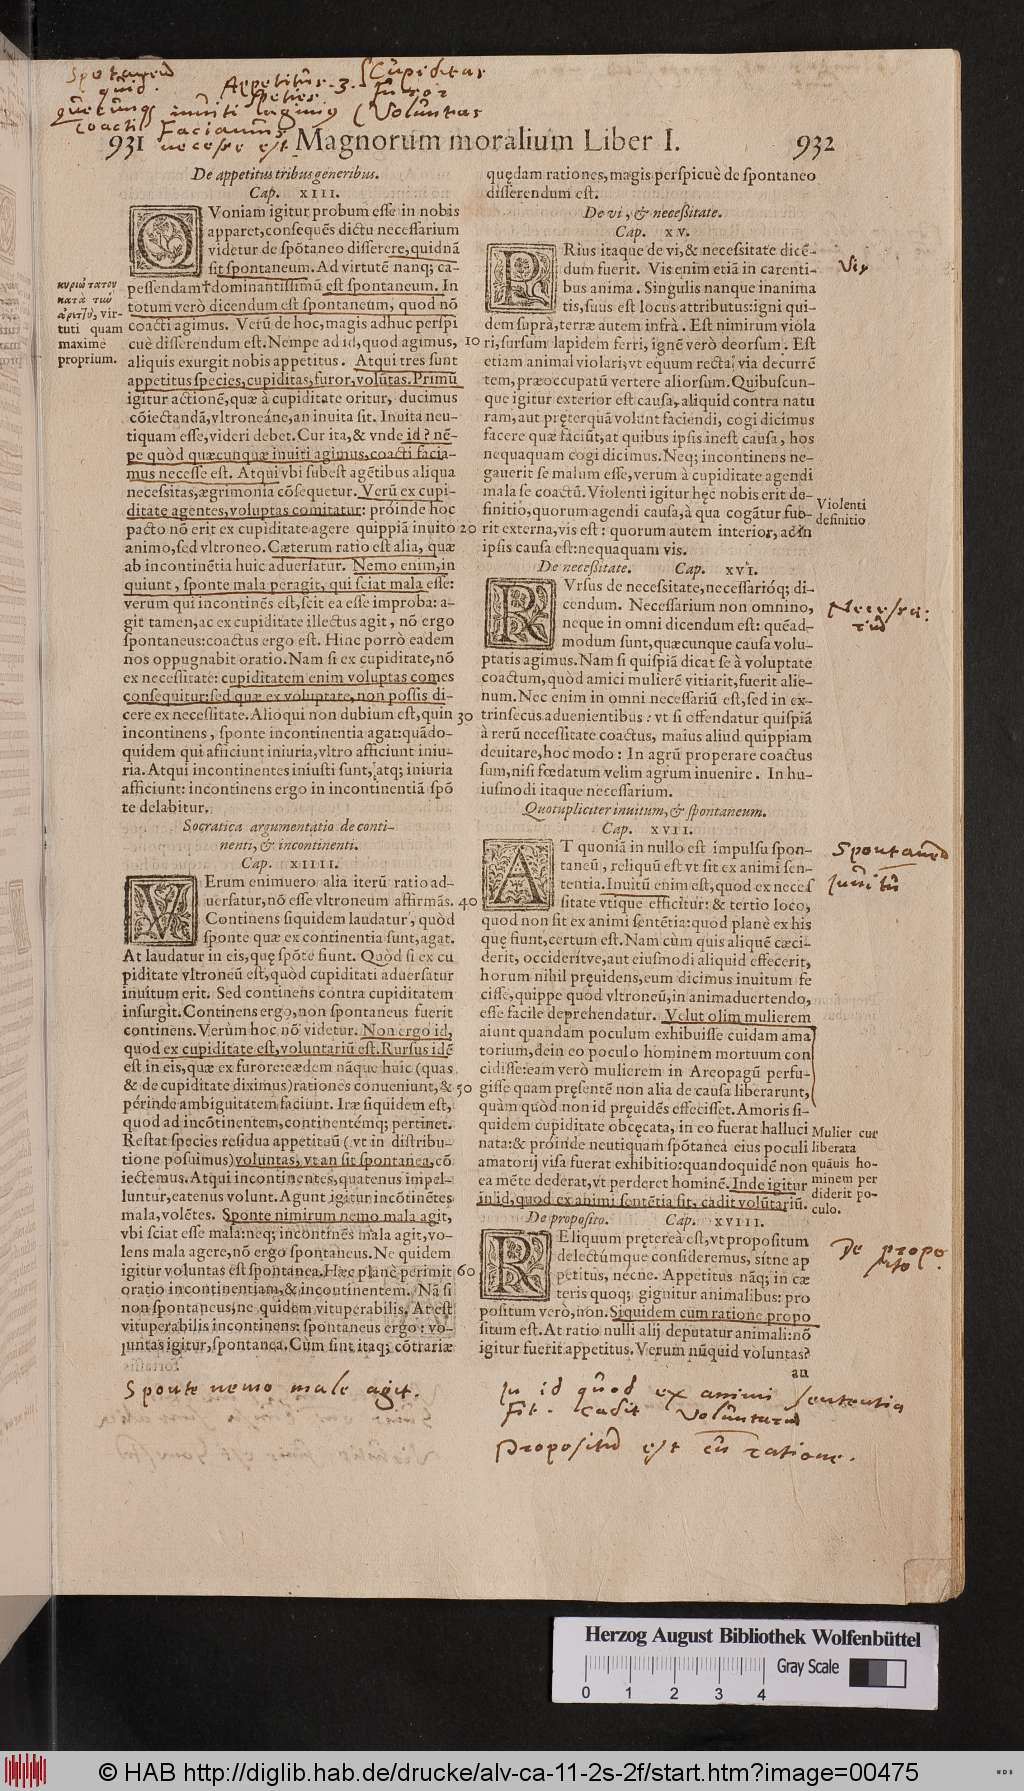 Spontaneũ
quid.
Quecunq; inuiti agimus
coacti Faciamus
necesse est
Appetitus 3.
species
Cupiditas
Furor
Voluntas
931 Magnorum moralium Liber I. 932
De appetitus tribus generibus.
Cap. XIII.
QVoniam igitur probum esse in nobis
apparet, consequẽs dictu necessarium
videtur de spõtaneo disserere, quidnã
sit spontaneum. Ad virtutẽ nanq; ca-
pessendam†dominantissimũ est spontaneum. In
totum verò dicendum est spontaneum, quod nõ
coacti agimus. Verũ de hoc, magis adhuc perspi
cuè disserendum est. Nempe ad id, quod agimus,
aliquis exurgit nobis appetitus. Atqui tres sunt
appetitus species, cupiditas, furor, volũtas. Primũ
igitur actionẽ, quæ à cupiditate oritur, ducimus
cõiectandã, vltroneáne, an inuita sit. Inuita neu-
tiquam esse, videri debet. Cur ita, & vnde id? nẽ-
pe quòd quæcunquæ inuiti agimus, coacti facia-
mus necesse est. Atqui vbi subest agẽtibus aliqua
necessitas, ægrimonia cõsequetur. Verũ ex cupi-
ditate agentes, voluptas comitatur: próinde hoc
pacto nõ erit ex cupiditate agere quippiã inuito
animo, sed vltroneo. Cæterum ratio est alia, quæ
ab incontinẽtia huic aduersatur. Nemo enim, in
quiunt, sponte mala peragit, qui sciat mala esse:
verum qui incontinẽs est, scit ea esse improba: a-
git tamen, ac ex cupiditate illectus agit, nõ ergo
spontaneus: coactus ergo est. Hinc porrò eadem
nos oppugnabit oratio. Nam si ex cupiditate, nõ
ex necessitate: cupiditatem enim voluptas comes
consequitur: sed quæ ex voluptate, non possis di-
cere ex necessitate. Alióqui non dubium est, quin
incontinens, sponte incontinentia agat: quãdo-
quidem qui afficiunt iniuria, vltro afficiunt iniu-
ria. Atqui incontinentes iniusti sunt, atq; iniuria
afficiunt: incontinens ergo in incontinentiã spõ
te delabitur.
Socratica argumentatio de conti-
nenti, & incontinenti.
Cap. XIIII.
VErum enimuero alia iterũ ratio ad-
uersatur, nõ esse vltroneum affirmãs.
Continens siquidem laudatur, quòd
sponte quæ ex continentia sunt, agat.
At laudatur in eis, quę spõte fiunt. Quòd si ex cu
piditate vltroneũ est, quòd cupiditati aduersatur
inuitum erit. Sed continens contra cupiditatem
insurgit. Continens ergo, non spontaneus fuerit
continens. Verùm hoc nõ videtur. Non ergo id,
quod ex cupiditate est, voluntariũ est. Rursus idẽ
est in eis, quæ ex furore: eædem nãque huic (quas
& de cupiditate diximus) rationes conueniunt, &
périnde ambiguitatem faciunt. Iræ siquidem est,
quod ad incõtinentem, continentémq; pertinet.
Restat species residua appetituũ (vt in distribu-
tione posuimus) voluntas, vt an sit spontanea, cõ
iectemus. Atqui incontinentes, quatenus impel-
luntur, eatenus volunt. Agunt igitur incõtinẽtes
mala, volẽtes. Sponte nimirum nemo mala agit,
vbi sciat esse mala: neq; incontinẽs mala agit, vo-
lens mala agere, nõ ergo spontaneus. Ne quidem
igitur voluntas est spontanea. Hæc planè perimit
oratio incontinentiam, & incontinentem. Nã si
non spontaneus, ne quidem vituperabilis. At est
vituperabilis incontinens: spontaneus ergo: vo-
luntas igitur, spontanea. Cùm sint itaq; cõtrariæ
κυριώτατον
κατὰ τὴν
ἀρετὴν, vir-
tuti quam
maximè
proprium.
10
20
30
40
50
60
quędam rationes, magis perspicuè de spontaneo
disserendum est.
De vi, & necessitate.
Cap. XV.
PRius itaque de vi, & necessitate dicẽ-
dum fuerit. Vis enim etiã in carenti-
bus anima. Singulis nanque inanima
tis, suus est locus attributus: igni qui-
dem suprà, terræ autem infrà. Est nimirum viola
ri, sursum lapidem ferri, ignẽ verò deorsum. Est
etiam animal violari; vt equum recta via decurrẽ
tem, præoccupatũ vertere aliorsum. Quibuscun-
que igitur exterior est causa, aliquid contra natu
ram, aut pręterquã volunt faciendi, cogi dicimus
facere quæ faciũt, at quibus ipsis inest causa, hos
nequaquam cogi dicimus. Neq; incontinens ne-
gauerit se malum esse, verum à cupiditate agendi
mala se coactũ. Violenti igitur hęc nobis erit de-
finitio, quorum agendi causa, à qua cogãtur fue-
rit externa, vis est: quorum autem interior, ac in
ipsis causa est: nequaquam vis.
De necessitate. Cap. XVI.
RVrsus de necessitate, necessarióq; di-
cendum. Necessarium non omnino,
neque in omni dicendum est: quẽad-
modum sunt, quæcunque causa volu-
ptatis agimus. Nam si quispiã dicat se à voluptate
coactum, quòd amici mulierẽ vitiarit, fuerit alie-
num. Nec enim in omni necessariũ est, sed in ex-
trinsecus aduenientibus: vt si offendatur quispiã
à rerũ necessitate coactus, maius aliud quippiam
deuitare, hoc modo: In agrũ properare coactus
sum, nisi fœdatum velim agrum inuenire. In hu-
iusmodi itaque necessarium.
Quotupliciter inuitum, & spontaneum.
Cap. XVII.
AT quoniã in nullo est impulsu spon-
taneũ, reliquũ est vt sit ex animi sen-
tentia. Inuitũ enim est, quod ex necess
sitate vtique efficitur: & tertio loco,
quod non sit ex animi sentẽtia: quod planè ex his
quę fiunt, certum est. Nam cùm quis aliquẽ cæci-
derit, occideritve, aut eiusmodi aliquid effecerit,
horum nihil pręuidens, eum dicimus inuitum fe
cisse, quippe quòd vltroneũ, in animaduertendo,
esse facile deprehendatur. Velut olim mulierem
aiunt quandam poculum exhibuisse cuidam ama
torium, dein eo poculo hominem mortuum con
cidisse: eam verò mulierem in Areopagũ perfu-
gisse quam pręsentẽ non alia de causa liberarunt,
quàm quòd non id pręuidẽs effecisset. Amoris si-
quidem cupiditate obcęcata, in eo fuerat halluci
nata: & próinde neutiquam spõtanea eius poculi
amatorij visa fuerat exhibitio: quandoquidẽ non
ea mẽte dederat, vt perderet hominẽ. Inde igitur
in id, quod ex animi sentẽtia sit, cadit volũtariũ.
De proposito. Cap. XVIII.
RELiquum pręterea est, vt propositum
delectúmque consideremus, sítne ap
petitus, necne. Appetitus nãq; in cæ
teris quoq; gignitur animalibus: pro
positum verò, non. Siquidem cum ratione propo
situm est. At ratio nulli alij deputatur animali: nõ
igitur fuerit appetitus. Verum nũquid voluntas?
an
Vis
Violenti
definitio
Necessa:
riũ
Spontaneũ
Inuitũ
Mulier cur
liberata
quãuis ho-
minem per
diderit po-
culo.
De propo
sito.
Sponte nemo male agit.
In id quod ex animi sententia
Fit. cadit Voluntariũ
Propositũ est cũ ratione.
Herzog August Bibliothek Wolfenbüttel
Gray Scale
0 1 2 3 4
© HAB http://diglib.hab.de/drucke/alv-ca-11-2s-2f/start.htm?image=00475